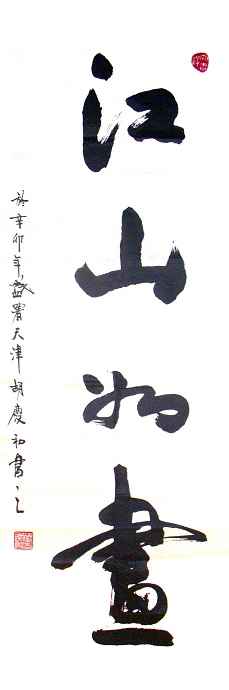 江山如畫
於辛卯年盛署天津胡慶初書之